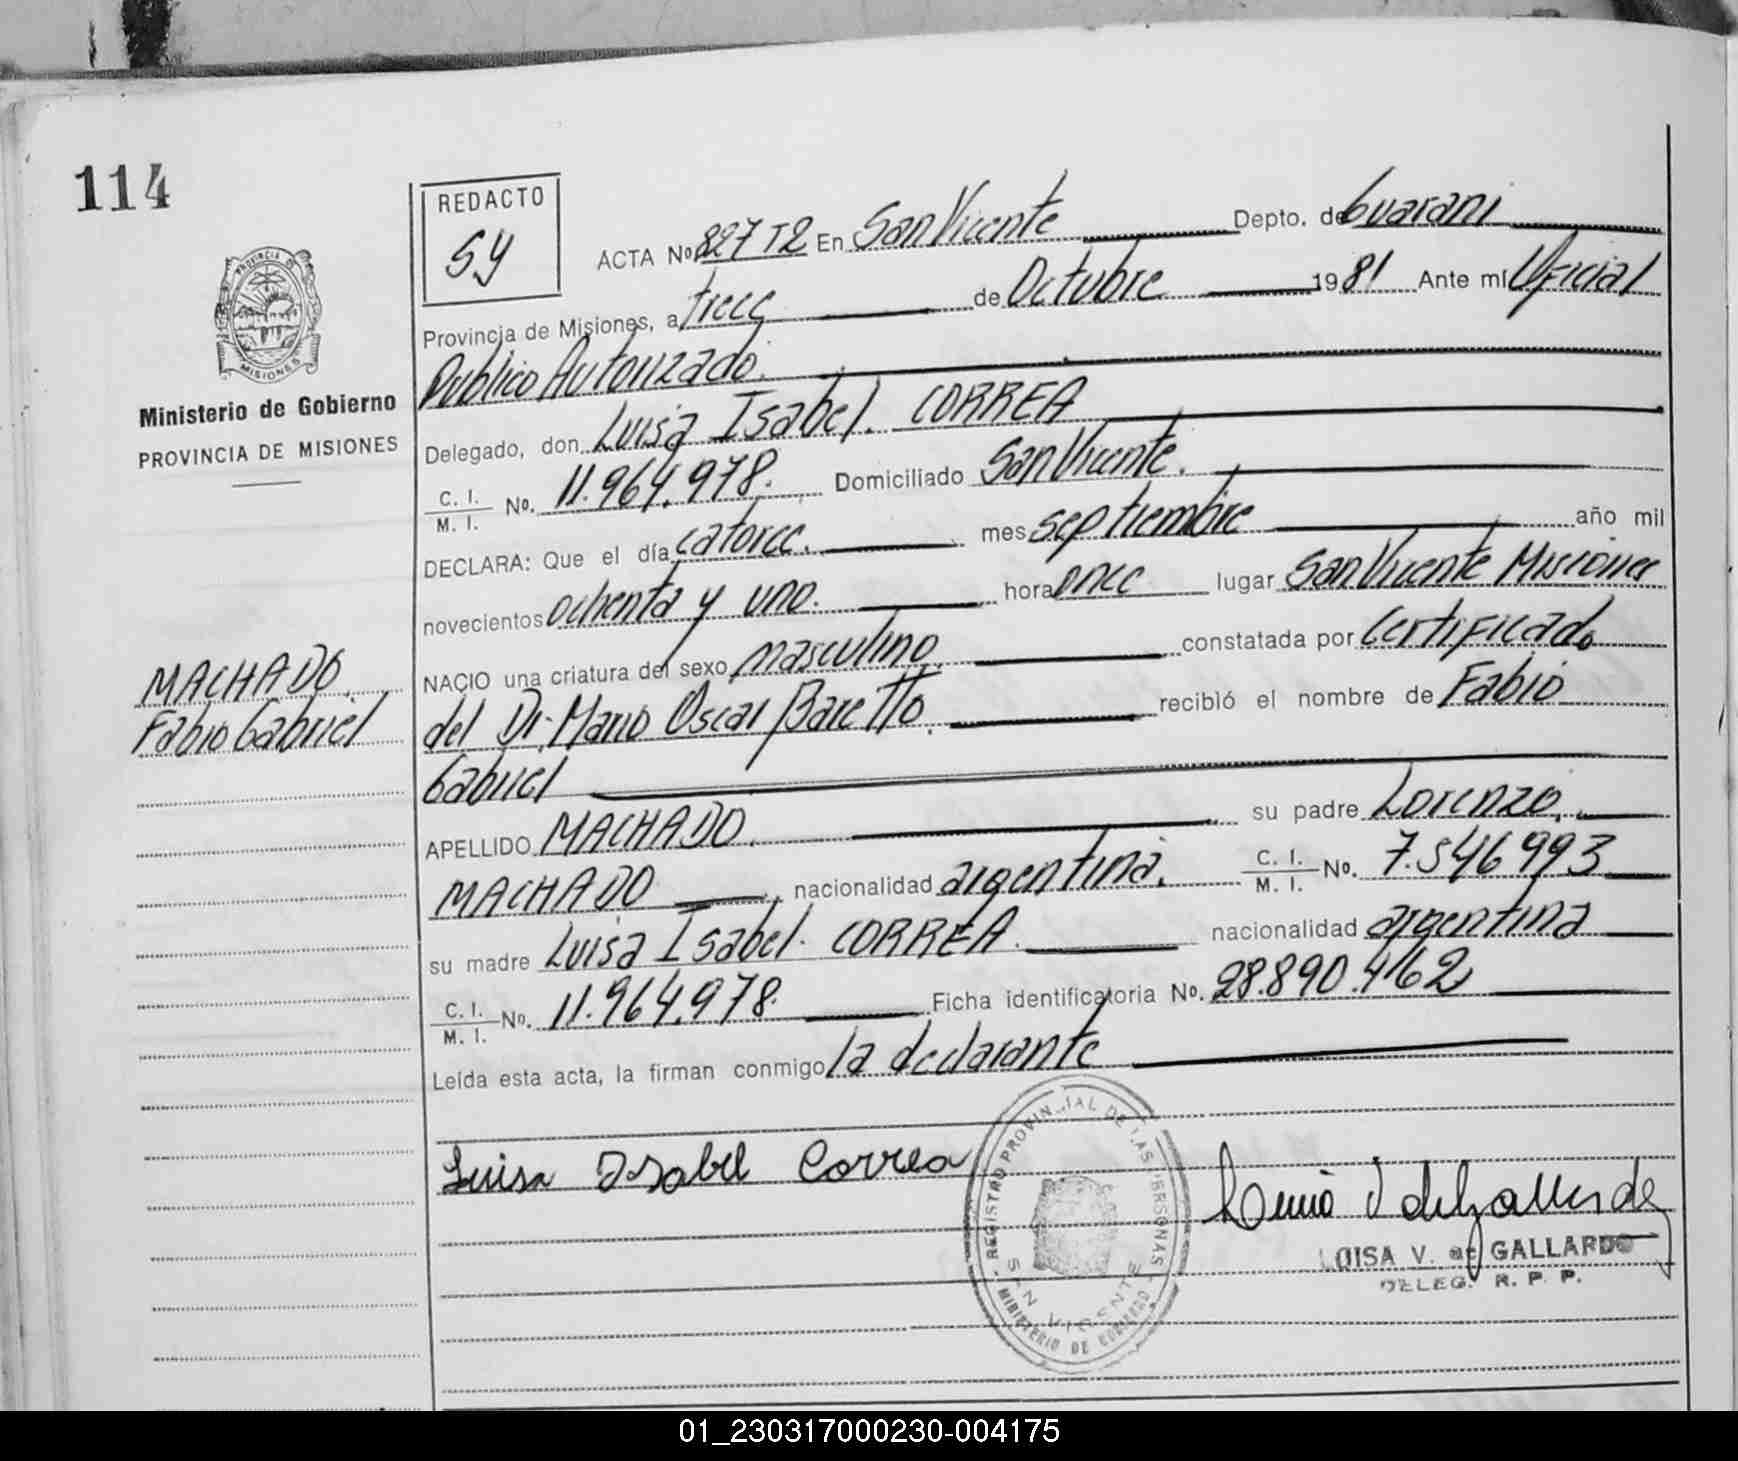 114
REDACTO
SY
PROVINCIA DE
MISIONES
Ministerio de Gobierno
PROVINCIA DE MISIONES
MACHADO.
Fabio Gabriel
ACTA Nº 827 T2 En San Vicente Depto. de Guarani
Provincia de Misiones, a trece de Octubre 1981 Ante mí Oficial
Publico Autorizado.
Delegado, don Luisa Isabel. CORREA
C. I.
M. I. Nº. 11.964.978. Domiciliado San Vicente.
DECLARA: Que el día catorce. mes septiembre año mil
novecientos ochenta y uno. hora once lugar San Vicente Misiones
NACIO una criatura del sexo masculino. constatada por Certificado
del Dr. Mario Oscar Baretto. recibió el nombre de Fabio
Gabriel
APELLIDO MACHADO. su padre Lorenzo.
MACHADO, nacionalidad argentina. C. I.
M. I. Nº. 7.546993
su madre Luisa Isabel. CORREA. nacionalidad argentina
C. I.
M. I. Nº. 11.964.978. Ficha identificatoria Nº. 28.890.462
Leída esta acta, la firman conmigo la declarante
Luisa Isabel Correa
REGISTRO PROVINCIAL DE LAS PERSONAS
SAN VICENTE
MINISTERIO DE GOBIERNO
LUISA V. de GALLARDO
DELEG. R. P. P.
01_230317000230-004175